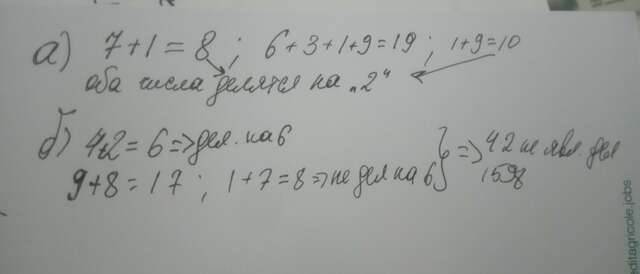 а) 7+1=8; 6+3+1+9=19; 1+9=10
оба числа делятся на „2“
б) 4+2=6=>дел. на 6
9+8=17; 1+7=8=>не дел на 6 } => 42 не явл. дел
1598
ditagricole.jobs